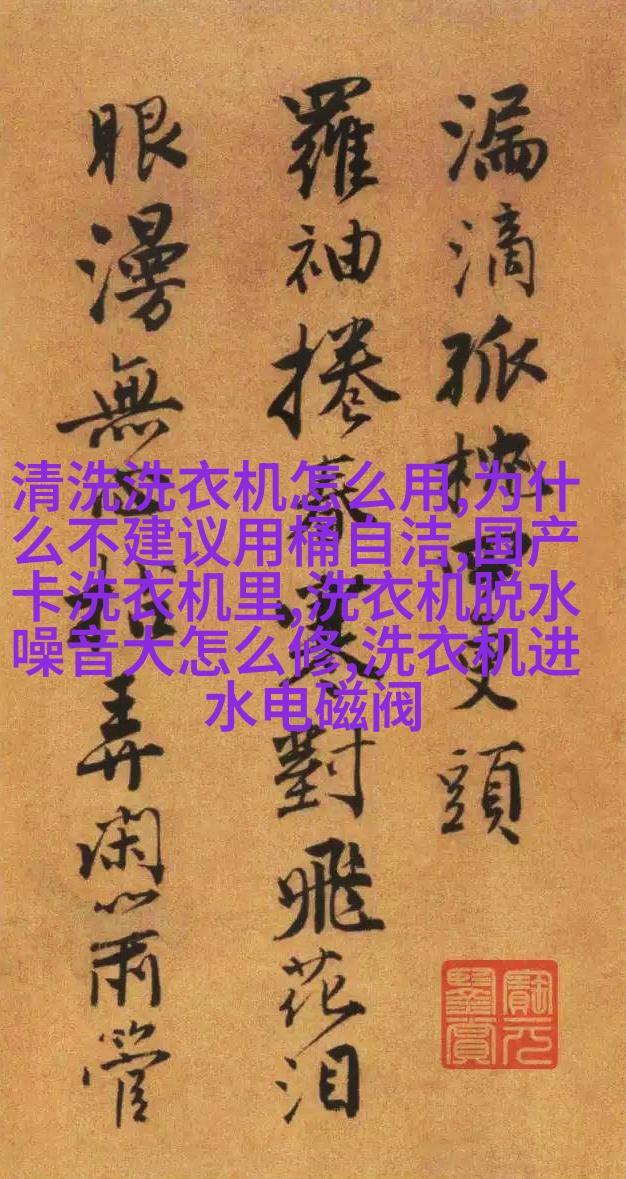 清洗洗衣机怎么用,为什
么不建议用桶自洁,国产
卡洗衣机里,洗衣机脱水
噪音大怎么修,洗衣机进
水电磁阀
漏滴孤頭
羅袖捲春對飛花泪
眼漫無弄閑管